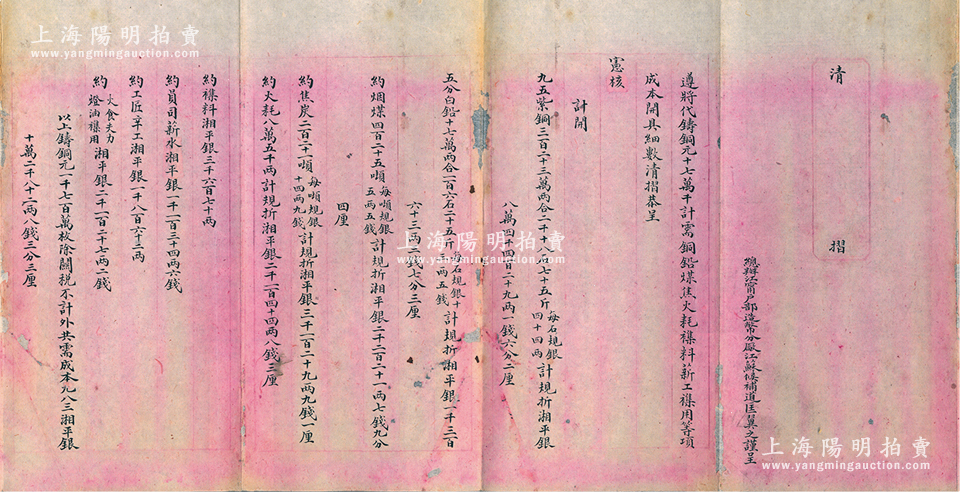 清摺
總辦江甯戶部造幣分廠江蘇候補道匡翼之謹呈
遵將代鑄銅元十七萬千計需銅鉛煤焦火耗襍料薪工襍用等項
成本開具細數清摺恭呈
憲核
計開
九五紫銅三百二十三萬兩合二千十八石七十五斤 每石規銀 四十四兩 計規折湘平銀
八萬四千四百二十九兩一錢六分二厘
五分白鉛十七萬兩合一百六石二十五斤 每石規銀十 兩五錢 計規折湘平銀一千三百
六十三兩 錢七分三厘
約烟煤四百二十五頓 每頓規銀 五兩五錢 計規折湘平銀二千二百二十一兩七錢九分
四厘
約焦炭二百二十一頓 每頓規銀 十四兩九錢 計規折湘平銀三千一百二十九兩九錢一厘
約火耗八萬五千兩計規折湘平銀二千二百四十四兩八錢三厘
約襍料湘平銀三千六百七十兩
約員司薪水湘平銀一千一百三十四兩六錢
約工匠辛工湘平銀一千八百六十二兩
約 火食夫力 燈油襍用 湘平銀二千一百二十七兩二錢
以上鑄銅元一千七百萬枚除關稅不計外共需成本九八三湘平銀
十萬二千八十二兩八錢三分三厘
上海陽明拍賣
www.yangmingauction.com
上海陽明拍賣
www.yangmingauction.com
上海陽明拍賣
www.yangmingauction.com